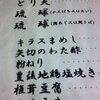 とり天
琉球
琉球
キラスまめし
矢切のわた酢
粉ねり
豊後地鶏塩焼き
椎茸豆腐